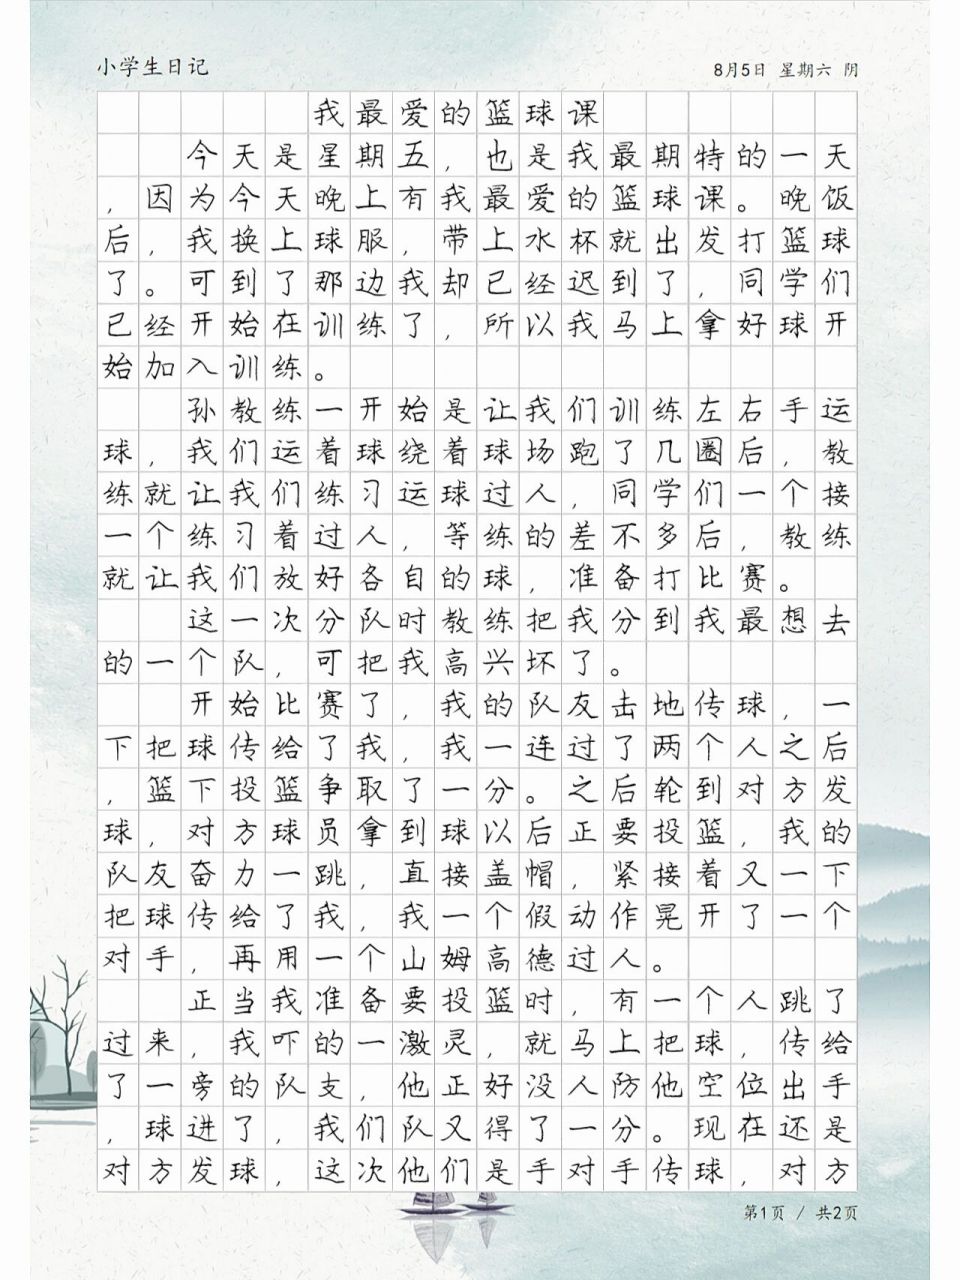 小学生日记
8月5日 星期六 阴
我最爱的篮球课
今天是星期五，也是我最期特的一天
，因为今天晚上有我最爱的篮球课。晚饭
后，我换上球服，带上水杯就出发打篮球
了。可到了那边我却已经迟到了，同学们
已经开始在训练了，所以我马上拿好球开
始加入训练。
孙教练一开始是让我们训练左右手运
球，我们运着球绕着球场跑了几圈后，教
练就让我们练习运球过人，同学们一个接
一个练习着过人，等练的差不多后，教练
就让我们放好各自的球，准备打比赛。
这一次分队时教练把我分到我最想去
的一个队，可把我高兴坏了。
开始比赛了，我的队友击地传球，一
下把球传给了我，我一连过了两个人之后
，篮下投篮争取了一分。之后轮到对方发
球，对方球员拿到球以后正要投篮，我的
队友奋力一跳，直接盖帽，紧接着又一下
把球传给了我，我一个假动作晃开了一个
对手，再用一个山姆高德过人。
正当我准备要投篮时，有一个人跳了
过来，我吓的一激灵，就马上把球，传给
了一旁的队支，他正好没人防他空位出手
，球进了，我们队又得了一分。现在还是
对方发球，这次他们是手对手传球，对方
第1页 / 共2页